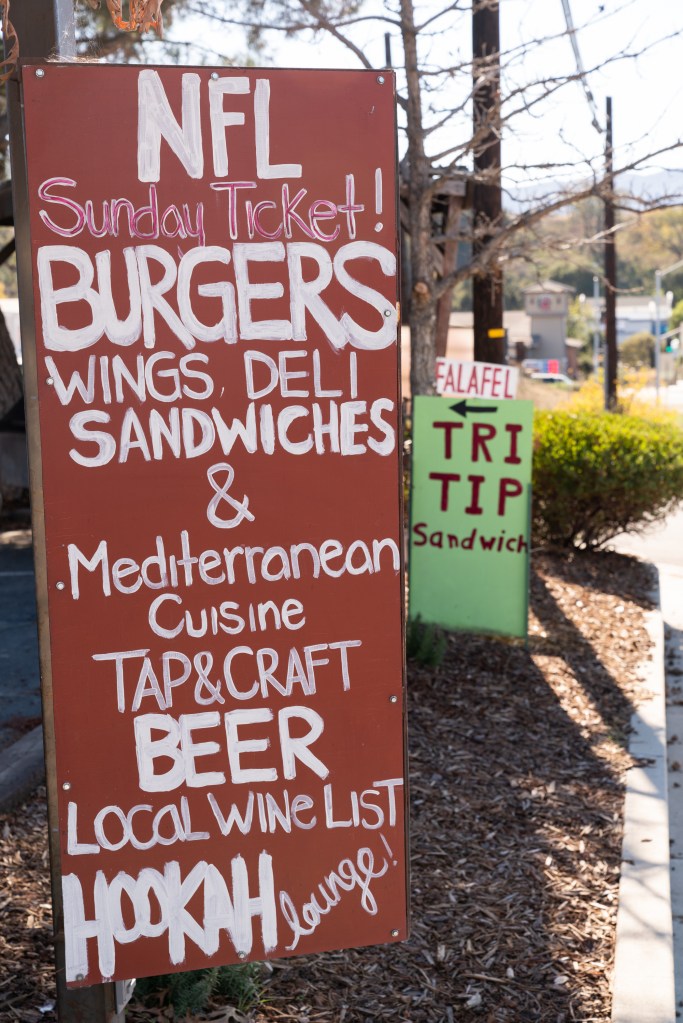 NFL
Sunday Ticket!
BURGERS
WINGS, DELI
SANDWICHES
&
Mediterranean
Cuisine
TAP&CRAFT
BEER
LOCAL WINE LIST
HOOKAH lounge!
FALAFEL
TRI
TIP
Sandwich